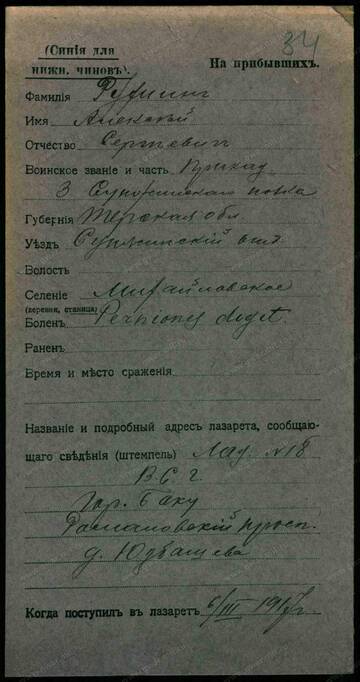 (Синія для
нижн. чиновъ).
На прибывшихъ.
34
Фамилія
Имя Алексѣй
Отчество Сергѣевич
Воинское званіе и часть Приказ.
3 полка
Губернія Терская обл
Уѣздъ Сунженскій отд.
Волость
Селеніе Михайловское
(деревня, станица)
Боленъ Perniones digit.
Раненъ
Время и мѣсто сраженія
Названіе и подробный адресъ лазарета, сообщаю-
щаго свѣдѣнія (штемпель) Лаз. № 18
В. С. Г.
Гор. Баку
просп.
д. Юзбашева
Когда поступилъ въ лазаретъ 6/III 1917 г